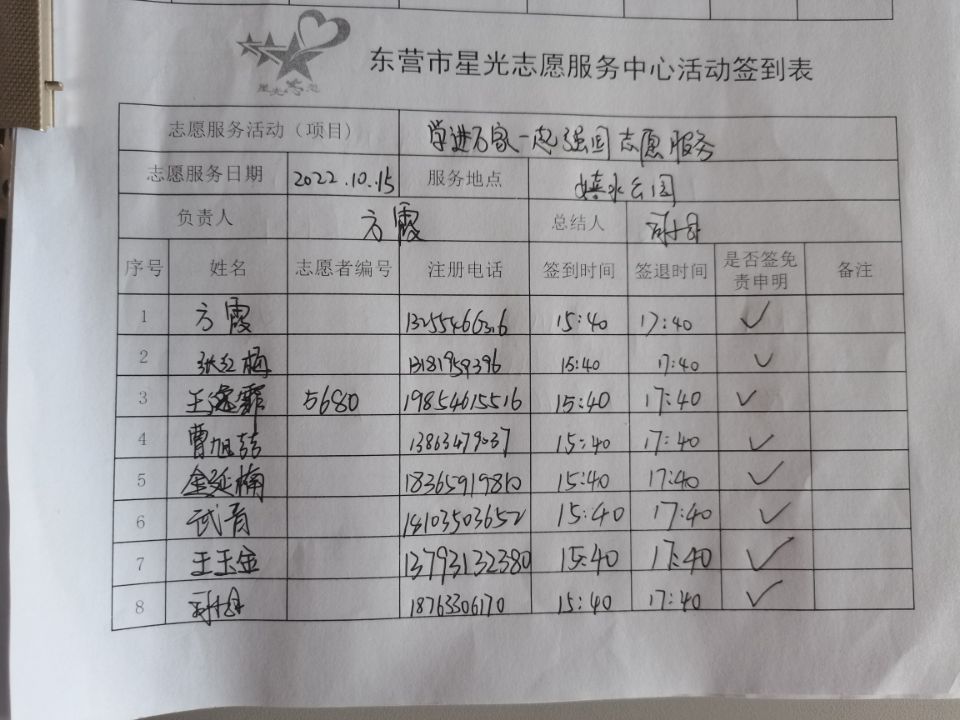 星光志愿
东营市星光志愿服务中心活动签到表
志愿服务活动（项目） 学进万家一志强国志愿服务
志愿服务日期 2022.10.15 服务地点 嬉水公园
负责人 方霞 总结人
序号 姓名 志愿者编号 注册电话 签到时间 签退时间 是否签免责申明 备注
1 方霞 13255466326 15:40 17:40 ✓
2 张红梅 13181959396 15:40 17:40 ✓
3 王 霏 5680 19854615516 15:40 17:40 ✓
4 曹旭喆 13863479037 15:40 17:40 ✓
5 金延楠 18365919810 15:40 17:40 ✓
6 武青 14103503652 15:40 17:40 ✓
7 王玉金 13793132380 15:40 17:40 ✓
8 18763306170 15:40 17:40 ✓